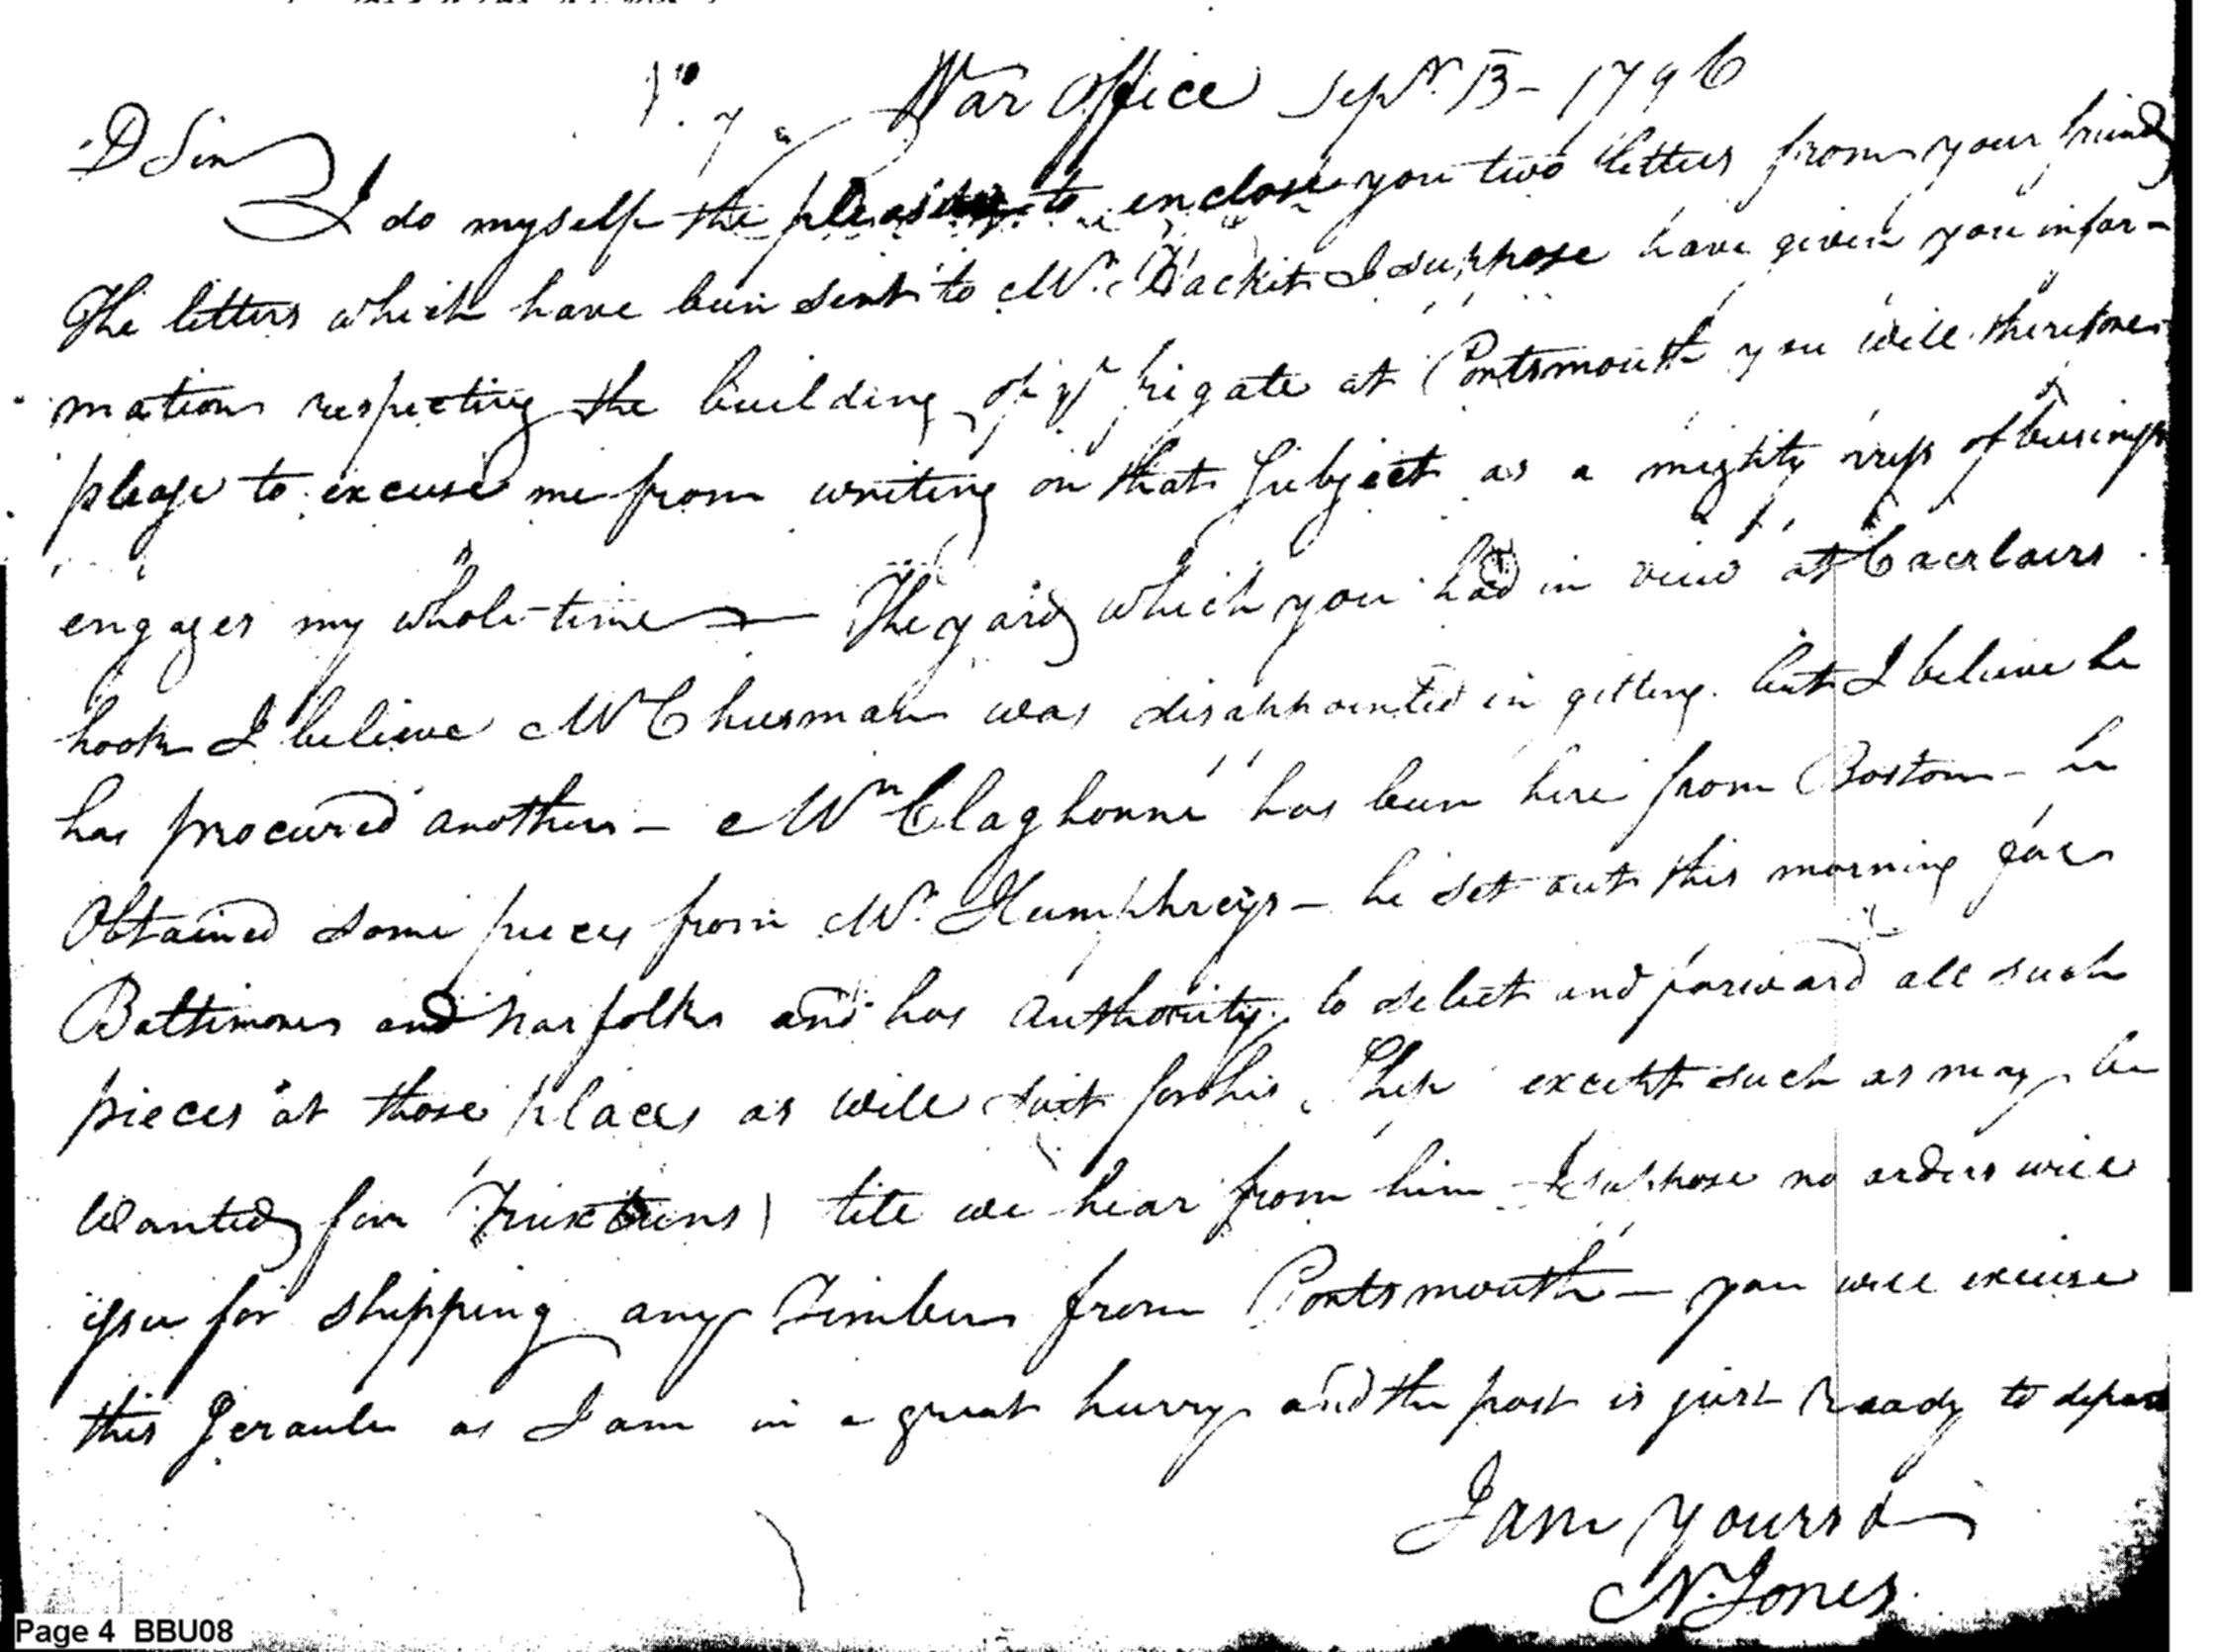 War Office Sepr. 13 - 1796
D Sir
I do myself the pleasure to enclose you two letters from your friends
The letters which have been sent to Mr. Hackit I suppose have given you infor-
mation respecting the building of ye frigate at Portsmouth you will therefore
please to excuse me from writing on that Subject as a mighty press of business
engages my whole time — The yard which you had in view at
hook I believe Mr Chusman was disappointed in getting. but I believe he
has procured another - Mr Claghorne has been here from Boston - he
Obtained some pieces from Mr. Humphreys - he set out this morning for
Baltimore and Norfolk and has authority to select and forward all such
pieces at those places as will suit for his Ship except such as may be
Wanted for Truxtuns) till we hear from him I suppose no orders will
issue for shipping any Timber from Portsmouth - you will excuse
this Scrawle as I am in a great hurry and the post is just Ready to depart
I am yours &
N. Jones
Page 4 BBU08